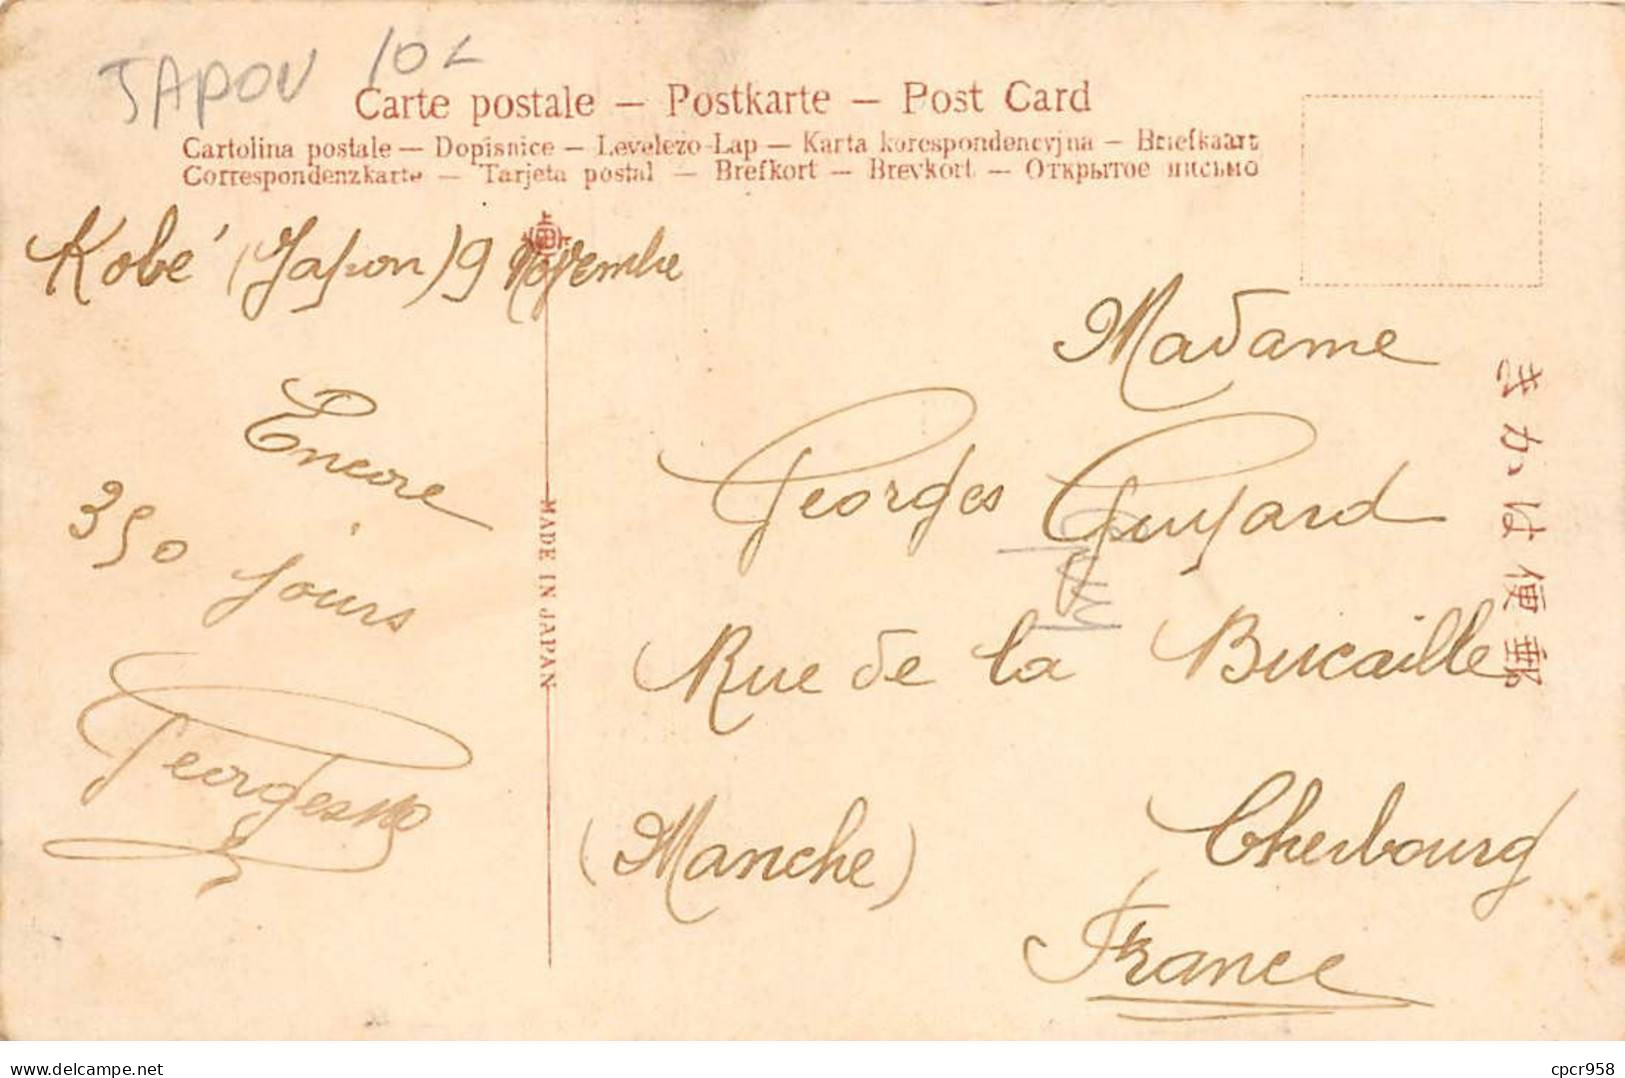 JAPON 10€
Carte postale — Postkarte — Post Card
Cartolina postale — Dopisnice — Levelezo-Lap — Karta korespondencyjna — Briefkaart
Correspondenzkarte — Tarjeta postal — Brefkort — Brevkort — Открытое письмо
Kobé (Japon) 9 Novembre
Encore
350 jours
Georges
MADE IN JAPAN
Madame
Georges Guyard
Rue de la Bucaille
Cherbourg
(Manche)
France
郵便はかき
delcampe.net
cpcr958